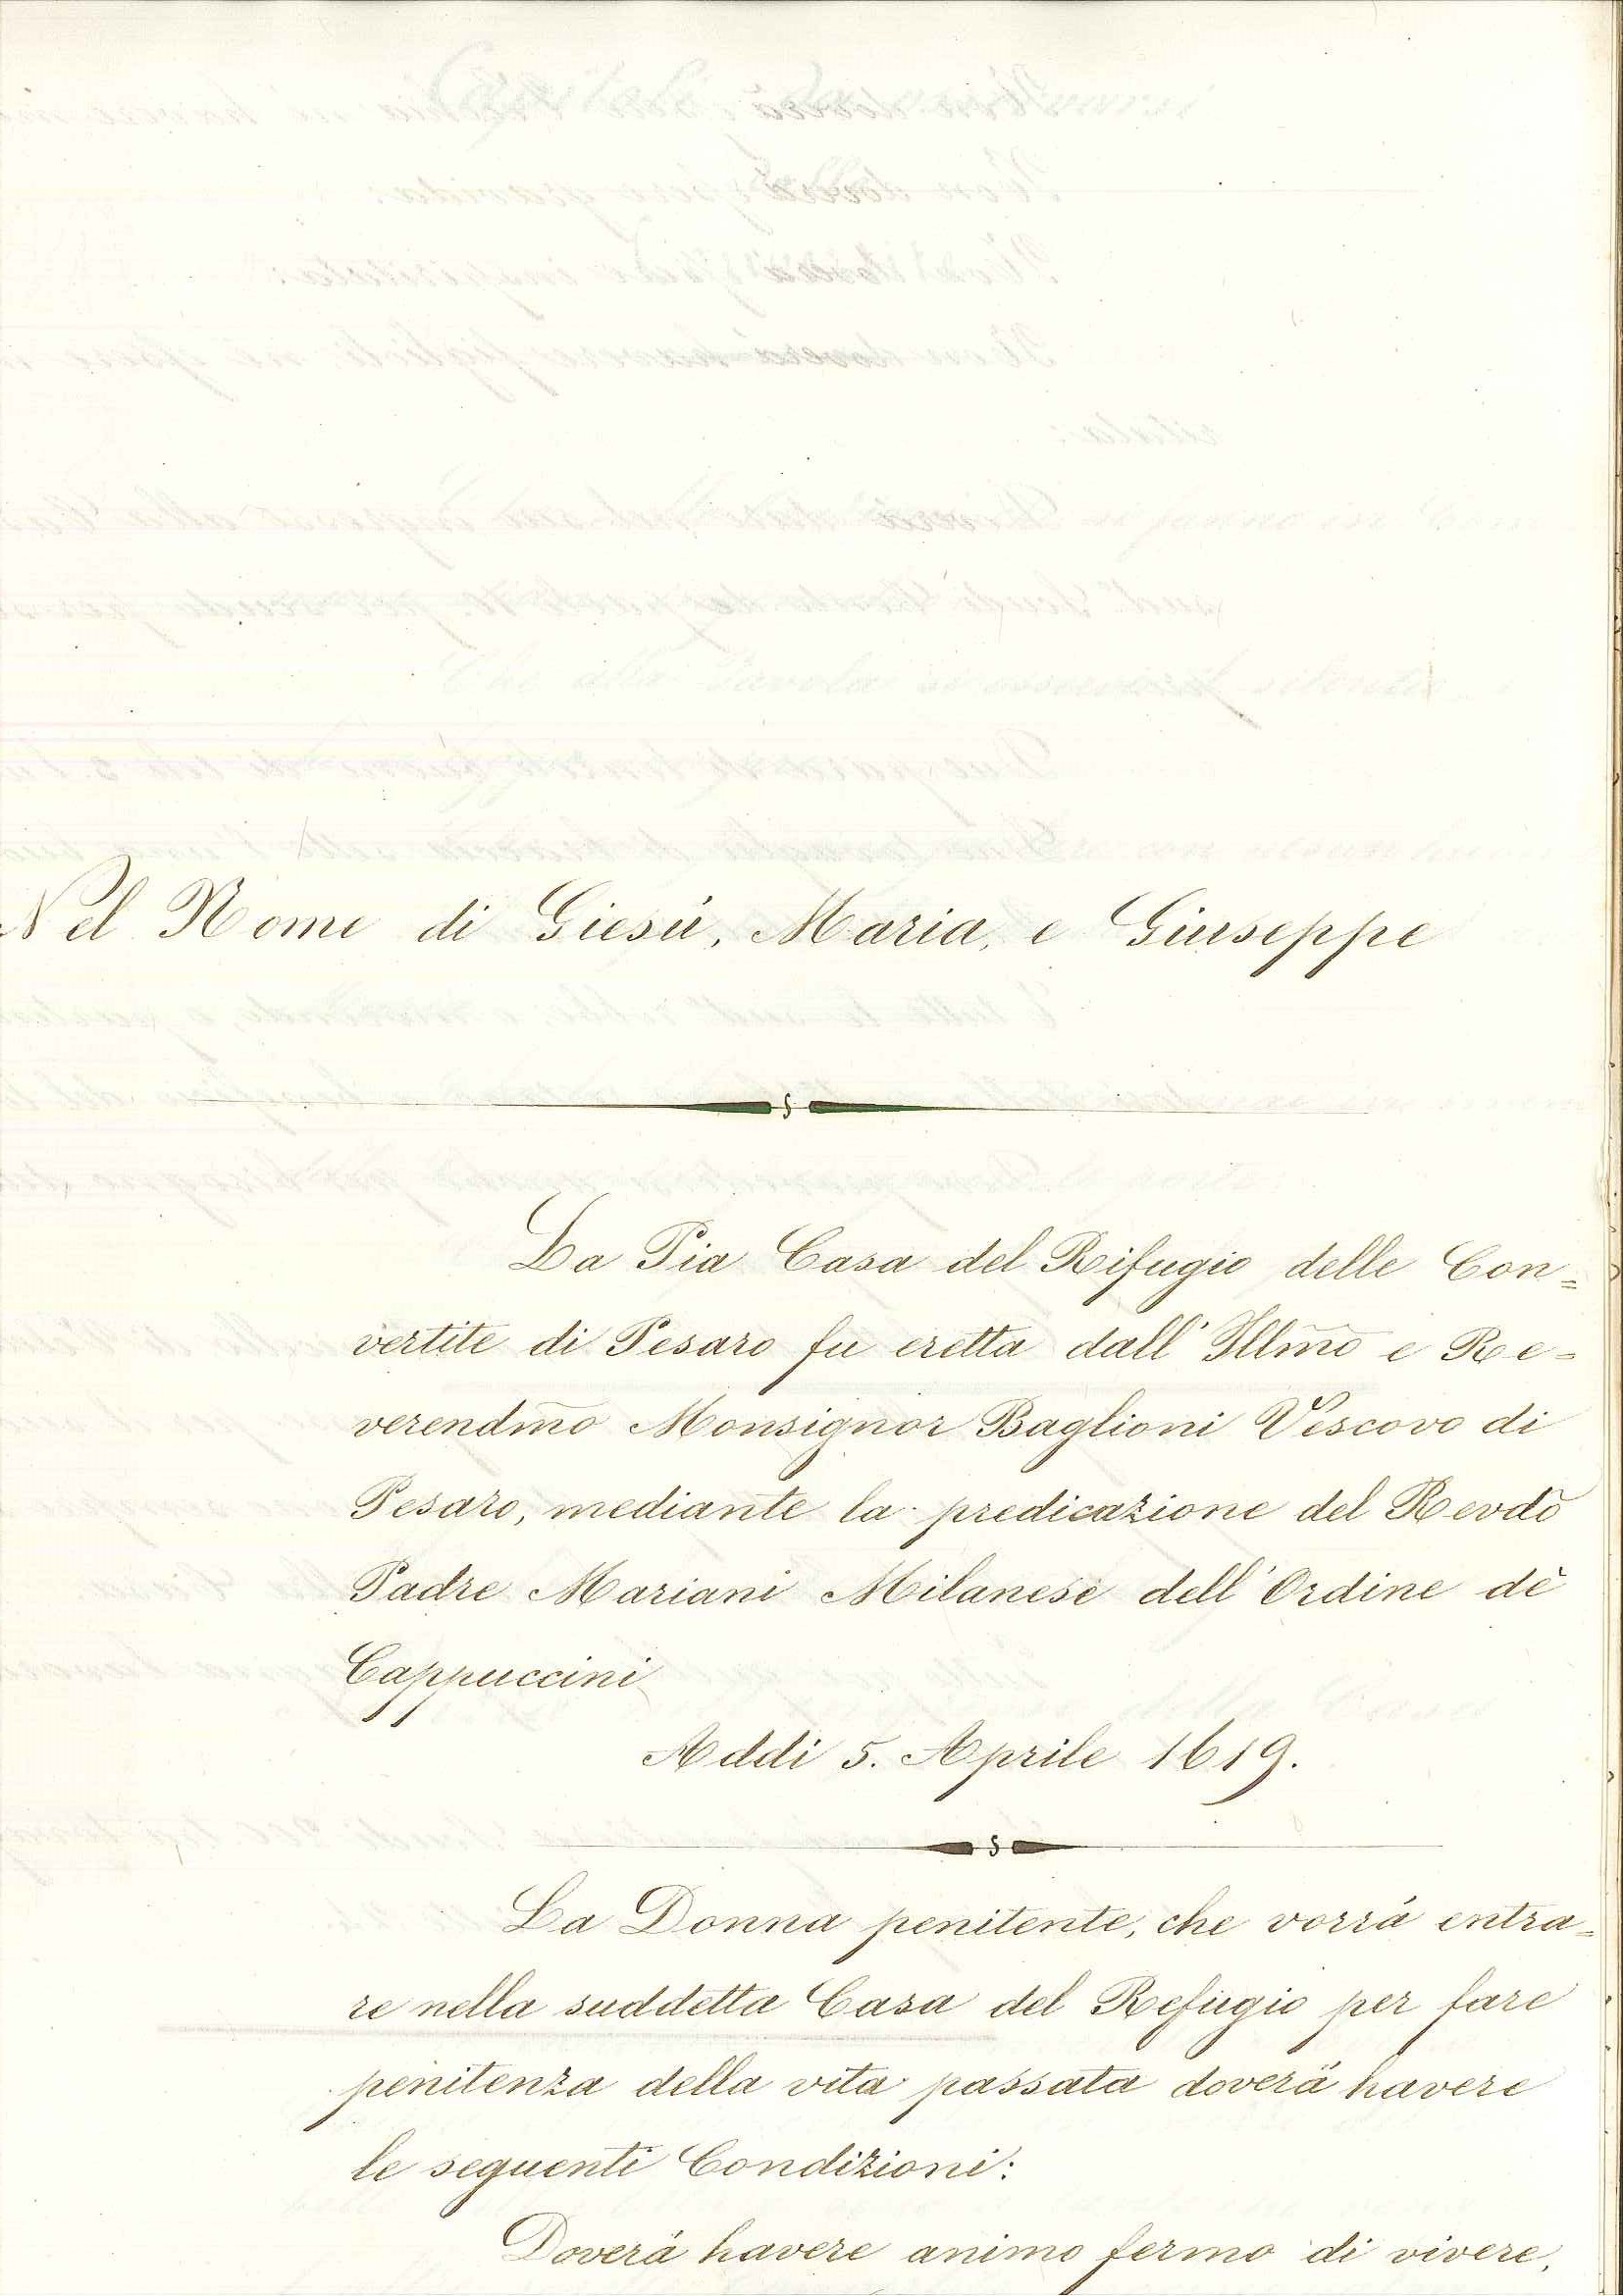 Nel Nome di Giesù, Maria, e Giuseppe
La Pia Casa del Rifugio delle Con=
vertite di Pesaro fu eretta dall' Illm̃o e Re=
verendm̃o Monsignor Baglioni Vescovo di
Pesaro, mediante la predicazione del Revdõ
Padre Mariani Milanese dell' Ordine dè
Cappuccini
Addi 5. Aprile 1619.
La Donna penitente, che vorrá entra=
re nella suddetta Casa del Refugio per fare
penitenza della vita passata doverá havere
le seguenti Condizioni:
Doverá havere animo fermo di vivere,